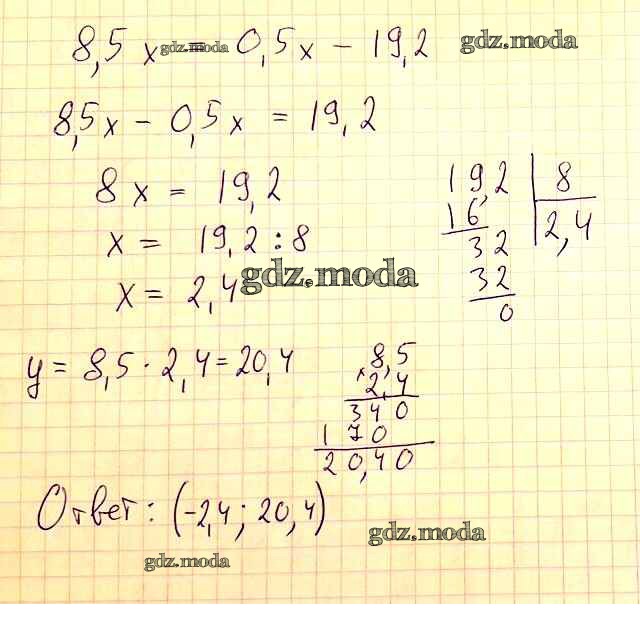 8,5x = 0,5x - 19,2
gdz.moda
gdz.moda
8,5x - 0,5x = 19,2
8x = 19,2
x = 19,2 : 8
x = 2,4
gdz.moda
19,2 | 8
16 | 2,4
32
32
0
y = 8,5 · 2,4 = 20,4
8,5
× 2,4
340
170
20,40
Ответ: (-2,4; 20,4)
gdz.moda
gdz.moda